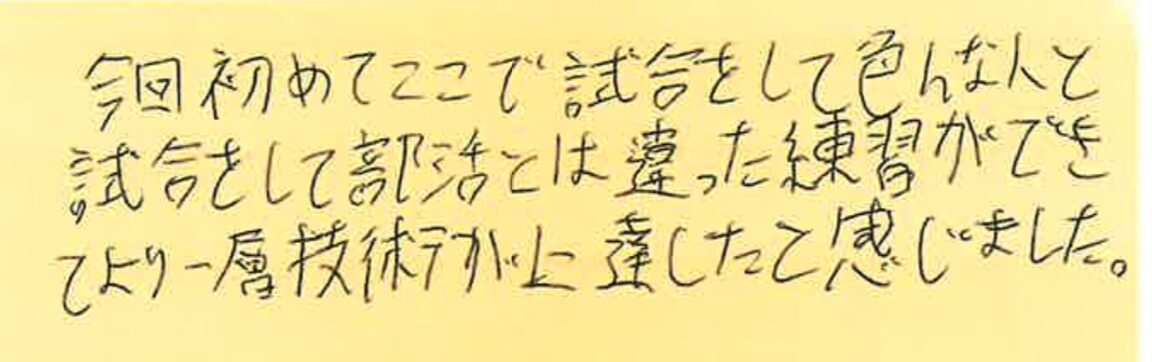 今回初めてここで試合をして色んな人と
試合をして部活とは違った練習ができ
てより一層技術が上達したと感じました。